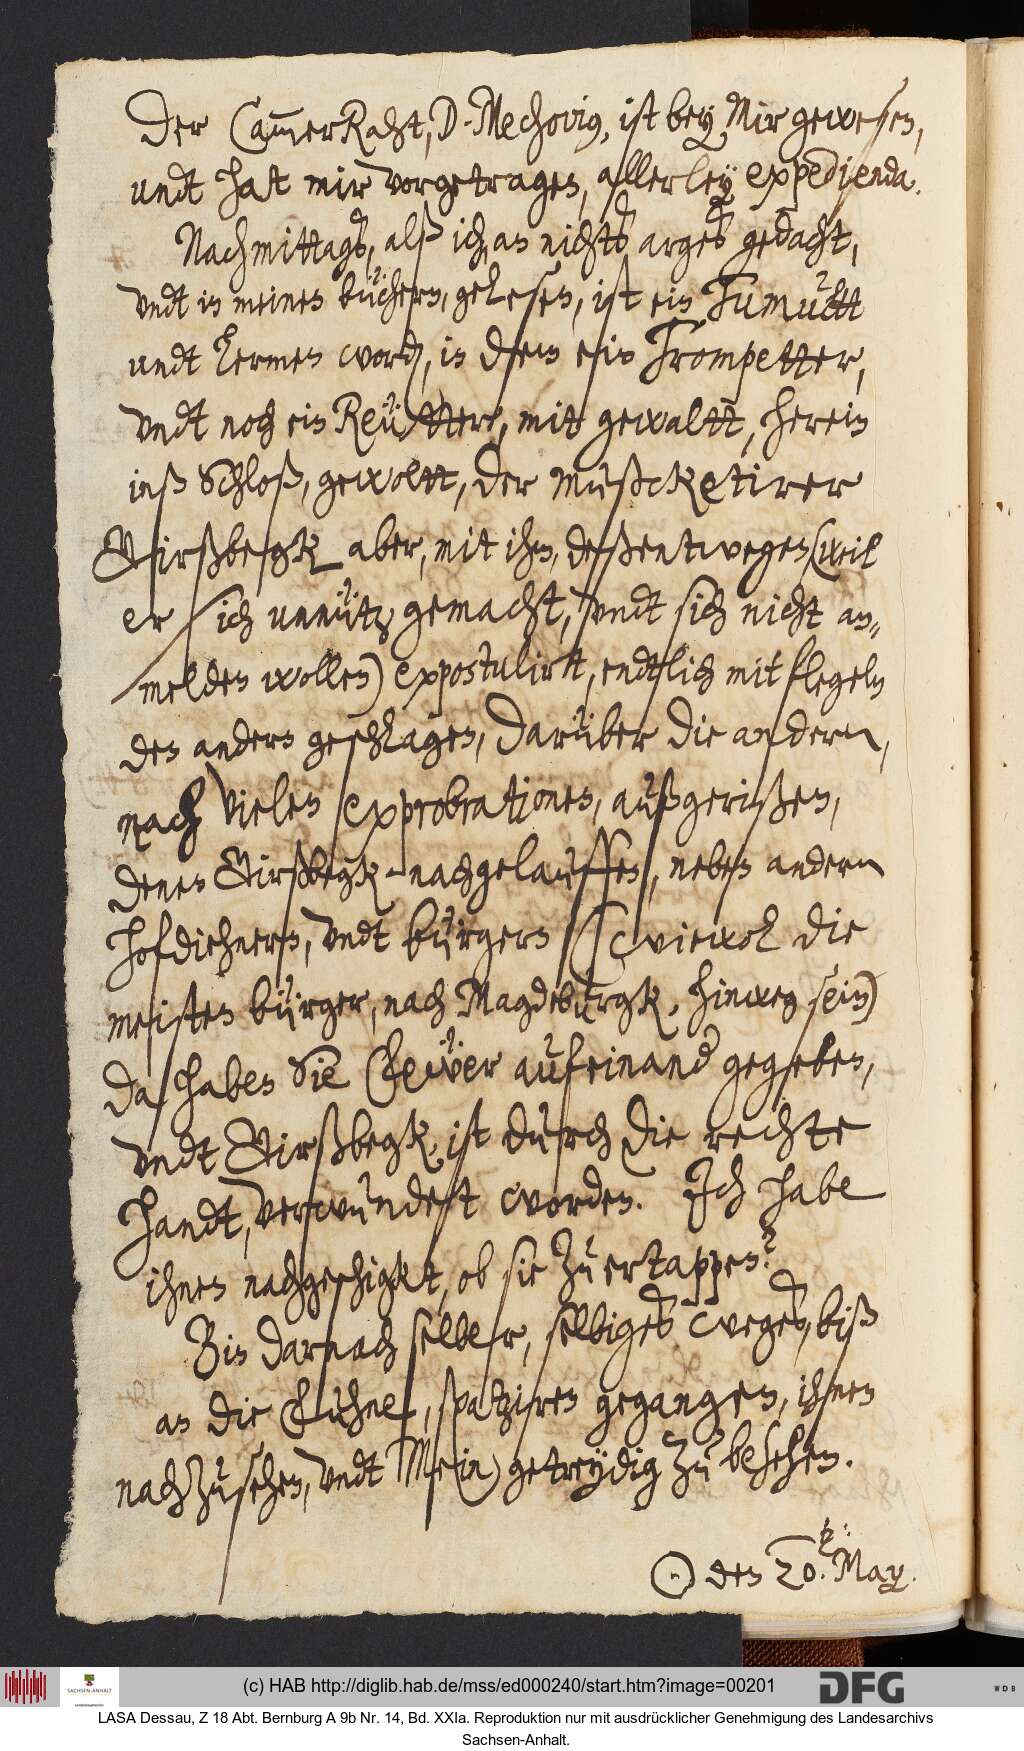 Der CammerRaht, D. Mechovius, ist bey Mir gewesen,
undt hatt mir vorgetragen, allerley expedienda.
Nachmittags, alß ich an nichts arges gedacht,
vndt in meinen büchern, gelesen, ist ein Tumultt
undt Lermen word, in dem ein Trompetter,
vndt noch ein Reütter, mit gewaltt, herein
inß Schloß, gewoltt, der Mußcketirer
Girßbegk aber, mit ihm, deßentwegen (weil
er sich unnütz gemacht, vndt sich nicht an=
melden wollen) expostulirt, endtlich mit flegeln
den andern geschlagen, darüber die andern,
nach vielen exprobrationen, außgerißen,
denen Girßbegk nachgelauffen, neben andern
Hofdiehnern, vndt bürgern (wiewol die
meisten bürger, nach Magdeburgk, hinweg sein)
da haben Sie Fewer aufeinand gegeben,
vndt Girßbegk, ist durch die rechte
handt, verwundet worden. Ich habe
ihnen nachgeschigkt, ob sie zu ertappen?
Bin darnach selber, selbiges weges, biß
an die Fuhne, spatziren gegangen, ihnen
nachzusehen, vndt Mein getreydig zu besehen.
☉ den 20. May.
(c) HAB http://diglib.hab.de/mss/ed000240/start.htm?image=00201
SACHSEN-ANHALT
DFG
WDB
LASA Dessau, Z 18 Abt. Bernburg A 9b Nr. 14, Bd. XXIa. Reproduktion nur mit ausdrücklicher Genehmigung des Landesarchivs
Sachsen-Anhalt.